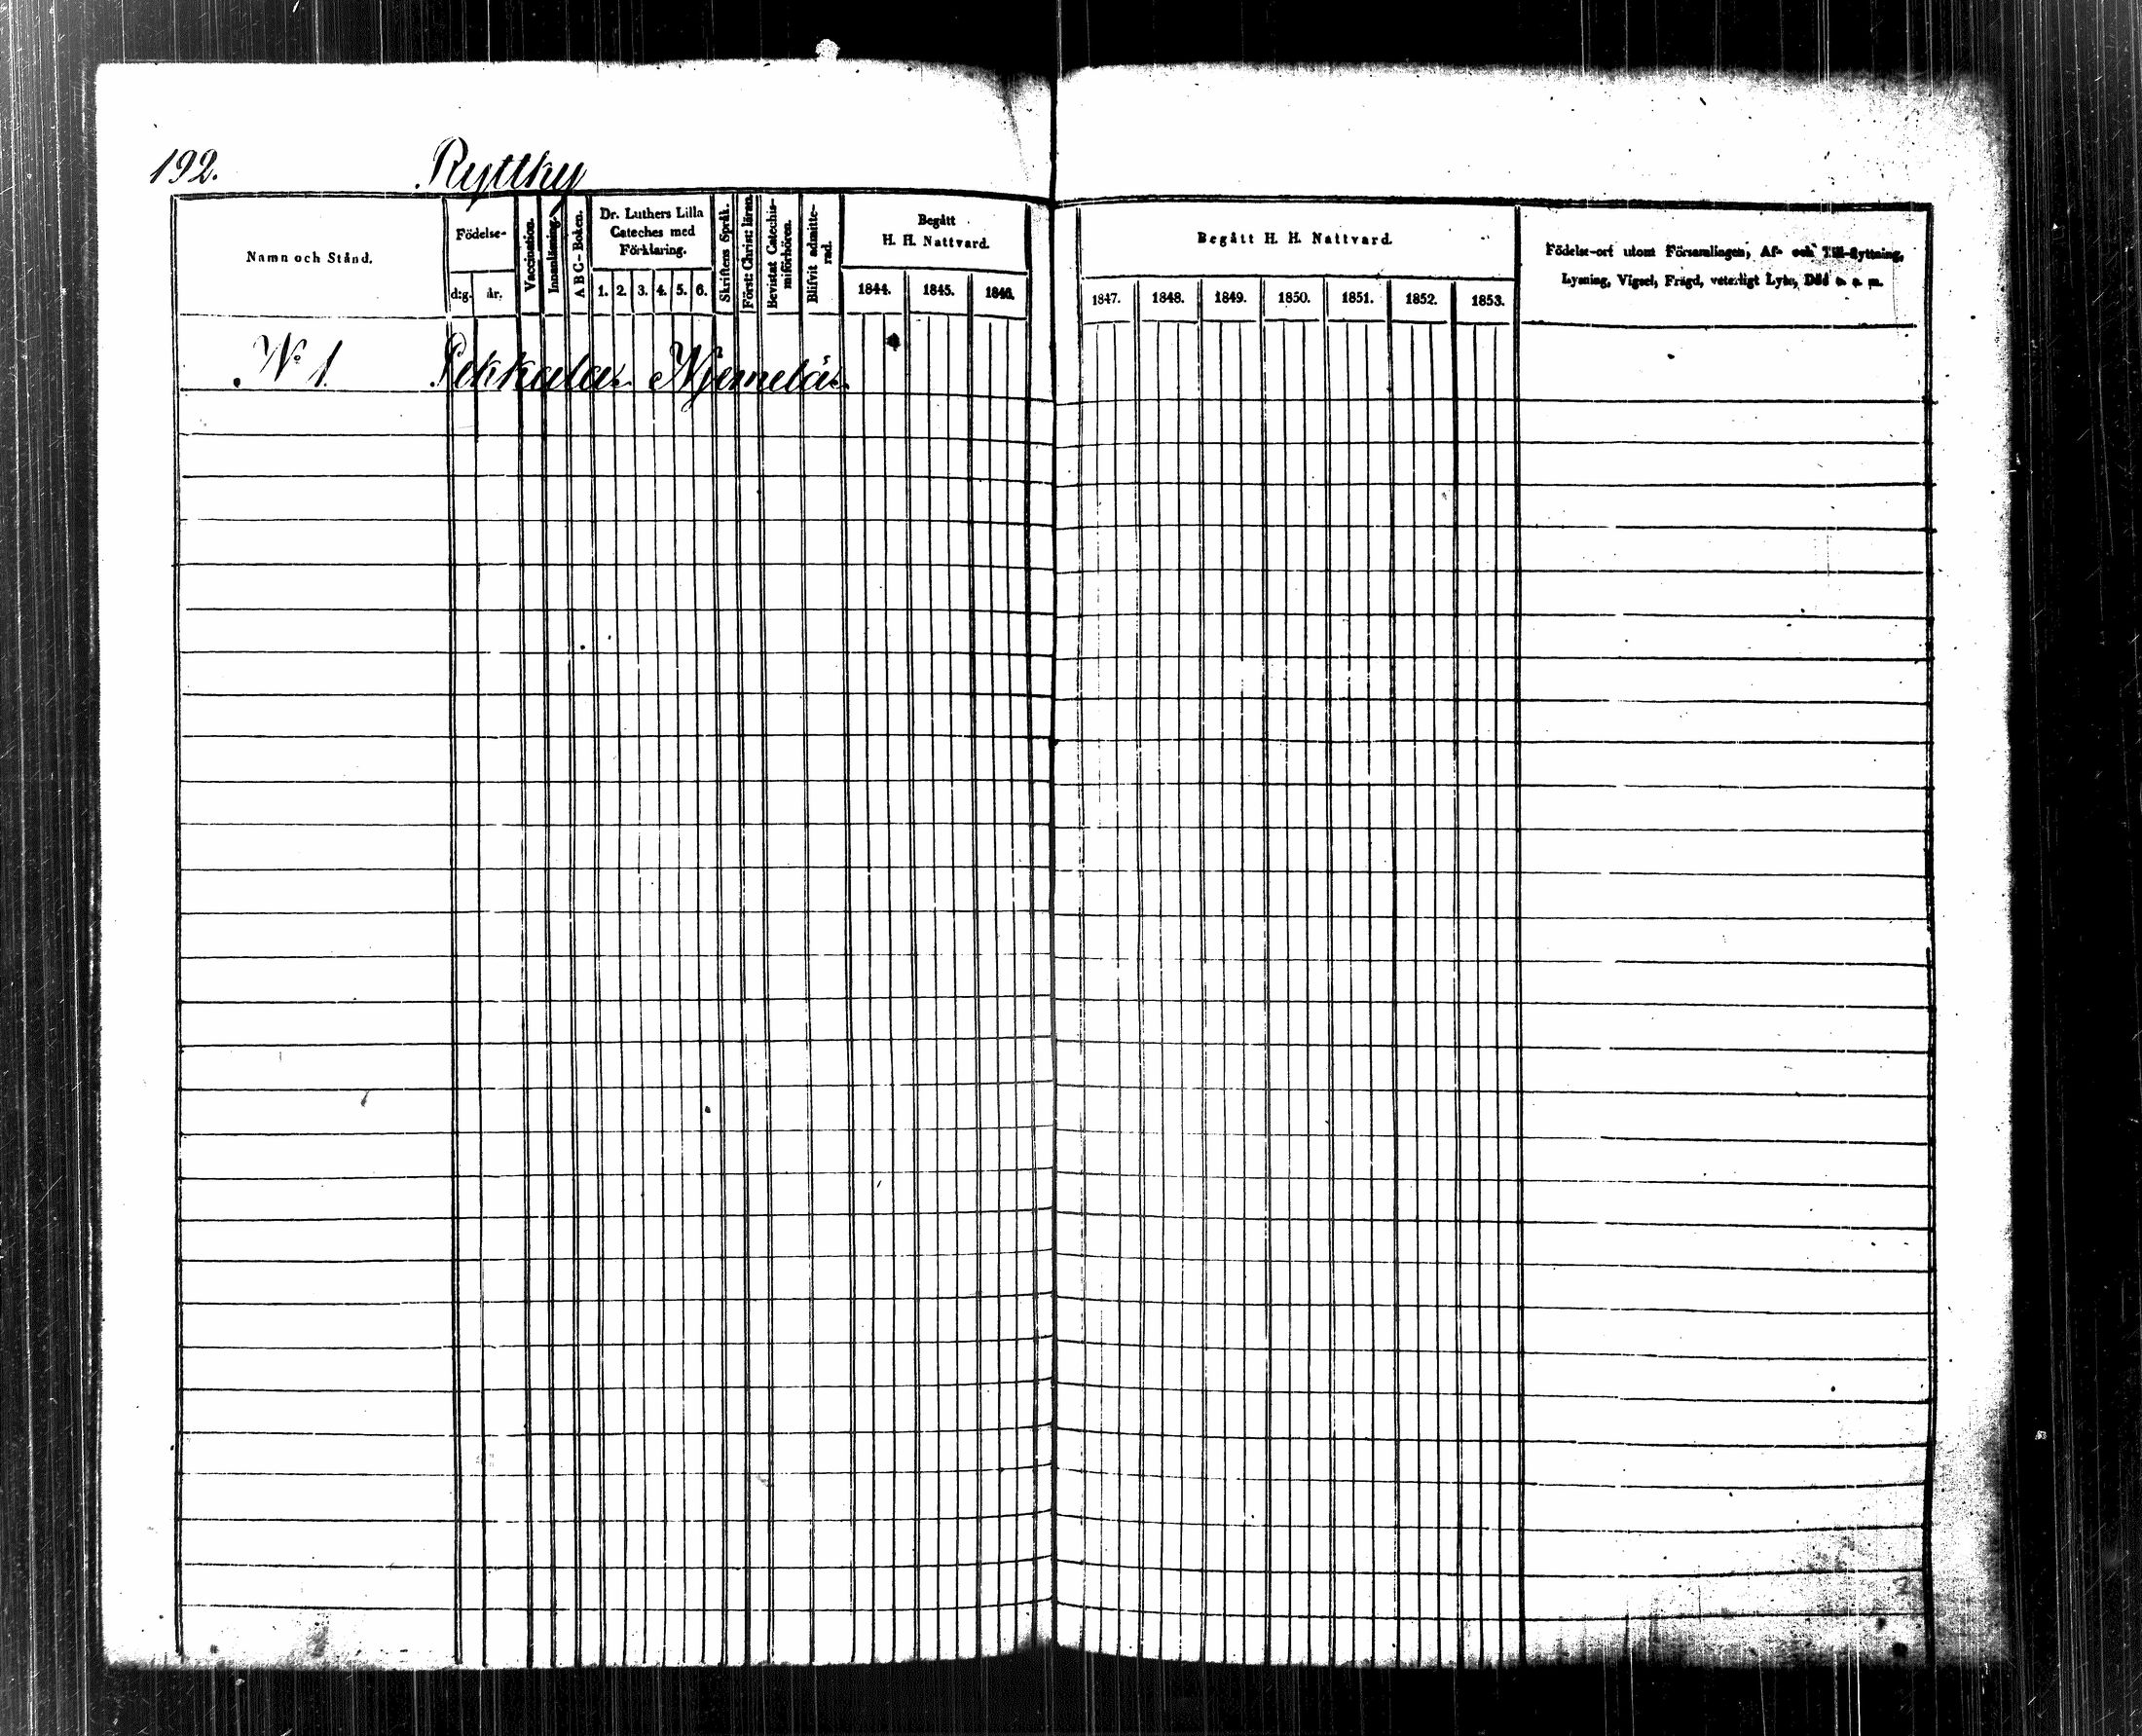 192. Ryttky
Namn och Stånd.
Födelse-
d:g. år.
Vaccination.
Innanläsning.
A B C-Boken.
Dr. Luthers Lilla
Cateches med
Förklaring.
1. 2. 3. 4. 5. 6.
Skriftens Språk.
Förstr: Christ: lären.
Bevistat Catechis-
miförhören.
Blifvit admitte-
rad.
Begått
H. H. Nattvard.
1844. 1845. 1846.
Begått H. H. Nattvard.
1847. 1848. 1849. 1850. 1851. 1852. 1853.
Födelse-ort utom Församlingen, Af- och Till-flyttning,
Lysning, Vigsel, Frägd, veterligt Lyte, Död o. s. m.
No 1 Pekkala. Njemelä.